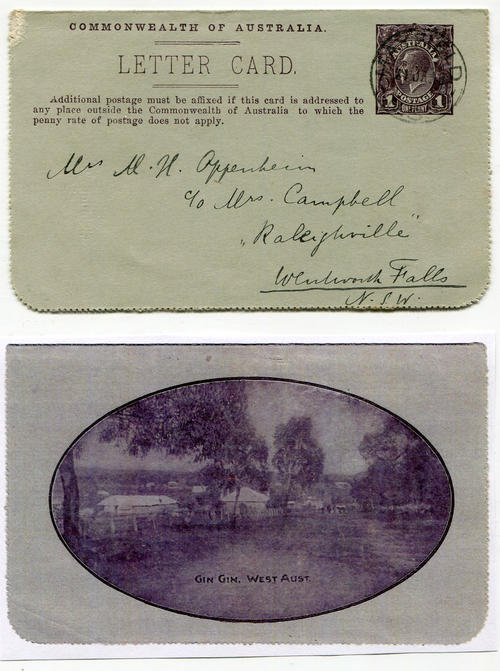 COMMONWEALTH OF AUSTRALIA.
LETTER CARD.
Additional postage must be affixed if this card is addressed to
any place outside the Commonwealth of Australia to which the
penny rate of postage does not apply.
AUSTRALIA
POSTAGE
1 ONE PENNY 1
Mrs M. H. Oppenheim
c/o Mrs. Campbell
"Raleighville"
Wentworth Falls
N.S.W.
GIN GIN, WEST AUST.